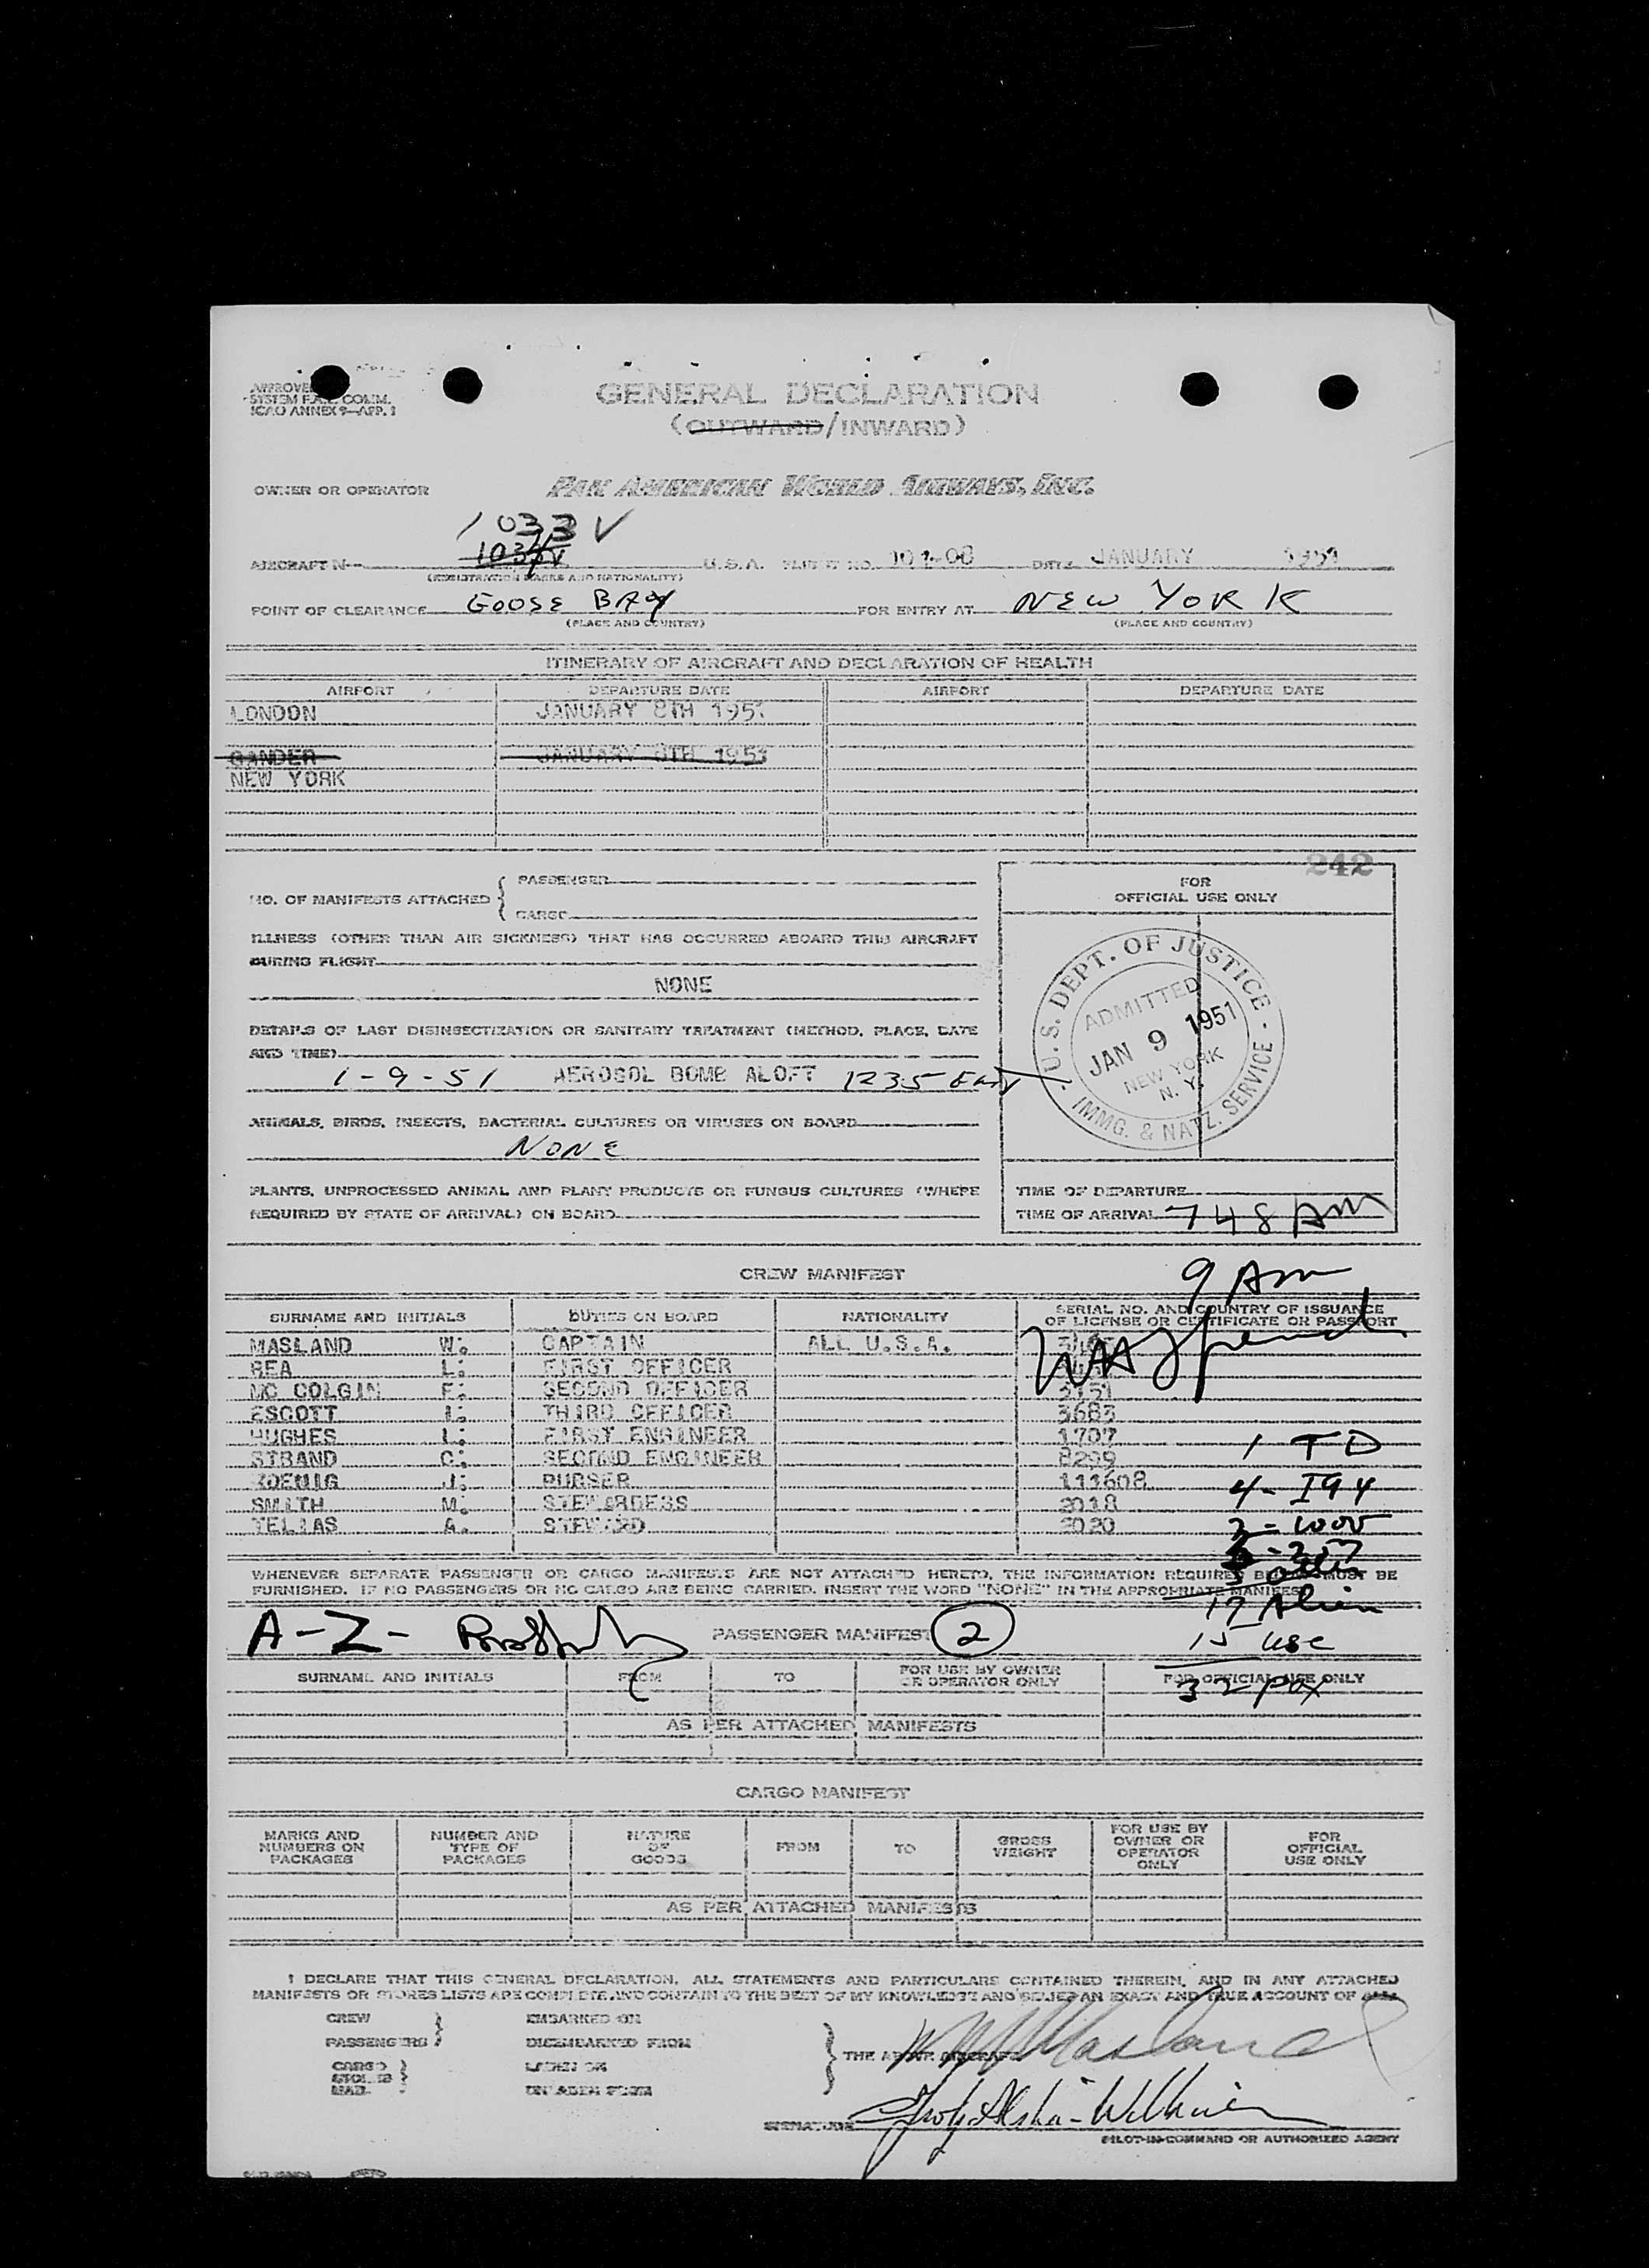 SYSTEM F.A.L. COMM.
ICAO ANNEX 9—APP. 1
GENERAL DECLARATION
(OUTWARD/INWARD)
OWNER OR OPERATOR PAN AMERICAN WORLD AIRWAYS, INC.
1033 V
AIRCRAFT N— U.S.A. FLIGHT NO. DATE JANUARY 1951
(REGISTRATION MARKS AND NATIONALITY)
POINT OF CLEARANCE GOOSE BAY FOR ENTRY AT NEW YORK
(PLACE AND COUNTRY) (PLACE AND COUNTRY)
ITINERARY OF AIRCRAFT AND DECLARATION OF HEALTH
AIRPORT DEPARTURE DATE AIRPORT DEPARTURE DATE
LONDON JANUARY 8TH 1951
GANDER JANUARY 8TH 1951
NEW YORK
242
NO. OF MANIFESTS ATTACHED { PASSENGER
CARGO
FOR
OFFICIAL USE ONLY
ILLNESS (OTHER THAN AIR SICKNESS) THAT HAS OCCURRED ABOARD THIS AIRCRAFT
DURING FLIGHT
NONE
DETAILS OF LAST DISINSECTIZATION OR SANITARY TREATMENT (METHOD, PLACE, DATE
AND TIME)
1-9-51 AEROSOL BOMB ALOFT 1235
U.S. DEPT. OF JUSTICE
ADMITTED
JAN 9 1951
NEW YORK
N. Y.
IMMG. & NATZ. SERVICE
ANIMALS, BIRDS, INSECTS, BACTERIAL CULTURES OR VIRUSES ON BOARD
NONE
PLANTS, UNPROCESSED ANIMAL AND PLANT PRODUCTS OR FUNGUS CULTURES (WHERE
REQUIRED BY STATE OF ARRIVAL) ON BOARD
TIME OF DEPARTURE
TIME OF ARRIVAL 748 AM
CREW MANIFEST
9 Am
SURNAME AND INITIALS DUTIES ON BOARD NATIONALITY SERIAL NO. AND COUNTRY OF ISSUANCE
OF LICENSE OR CERTIFICATE OR PASSPORT
MASLAND W. CAPTAIN ALL U.S.A.
REA L. FIRST OFFICER
MC COLGIN F. SECOND OFFICER 2151
ESCOTT THIRD OFFICER 3683
HUGHES L. FIRST ENGINEER 1707
STRAND C. SECOND ENGINEER 8299
KOENIG J. PURSER 111608
SMITH M. STEWARDESS 2018
TELIAS A. STEWARD 2020
1 TD
4- I94
WHENEVER SEPARATE PASSENGER OR CARGO MANIFESTS ARE NOT ATTACHED HERETO, THE INFORMATION REQUIRED BELOW MUST BE
FURNISHED. IF NO PASSENGERS OR NO CARGO ARE BEING CARRIED, INSERT THE WORD "NONE" IN THE APPROPRIATE MANIFEST.
17 Alien
A-Z- PASSENGER MANIFEST 2
15 usc
SURNAME AND INITIALS FROM TO FOR USE BY OWNER
OR OPERATOR ONLY FOR OFFICIAL USE ONLY
32 pax
AS PER ATTACHED MANIFESTS
CARGO MANIFEST
MARKS AND
NUMBERS ON
PACKAGES NUMBER AND
TYPE OF
PACKAGES NATURE
OF
GOODS FROM TO GROSS
WEIGHT FOR USE BY
OWNER OR
OPERATOR
ONLY FOR
OFFICIAL
USE ONLY
AS PER ATTACHED MANIFESTS
I DECLARE THAT THIS GENERAL DECLARATION, ALL STATEMENTS AND PARTICULARS CONTAINED THEREIN, AND IN ANY ATTACHED
MANIFESTS OR STORES LISTS ARE COMPLETE AND CONTAIN TO THE BEST OF MY KNOWLEDGE AND BELIEF AN EXACT AND TRUE ACCOUNT OF ALL
CREW EMBARKED ON
PASSENGERS DISEMBARKED FROM
CARGO LADEN ON
UNLADEN FROM
THE ABOVE AIRCRAFT
SIGNATURE
PILOT-IN-COMMAND OR AUTHORIZED AGENT